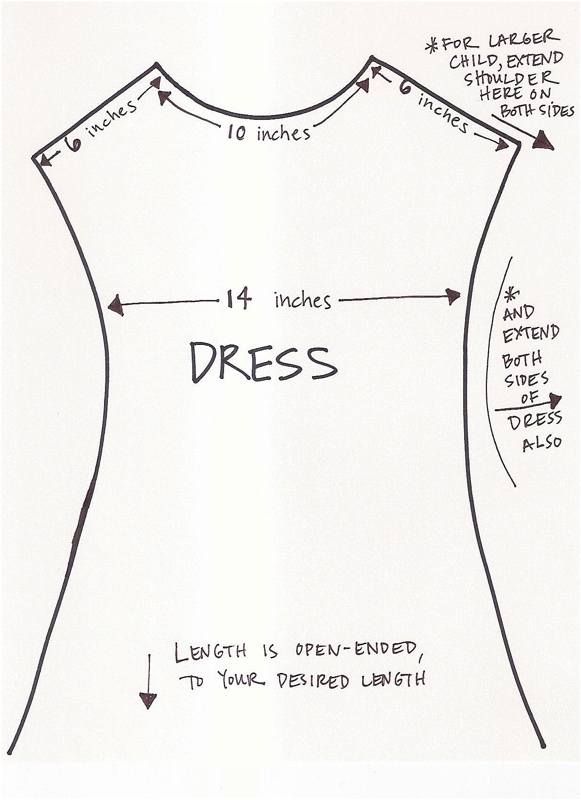 *FOR LARGER
CHILD, EXTEND
SHOULDER
HERE ON
BOTH SIDES
6 inches
10 inches
6 inches
14 inches
DRESS
*
AND
EXTEND
BOTH
SIDES
OF
DRESS
ALSO
LENGTH IS OPEN-ENDED,
TO YOUR DESIRED LENGTH